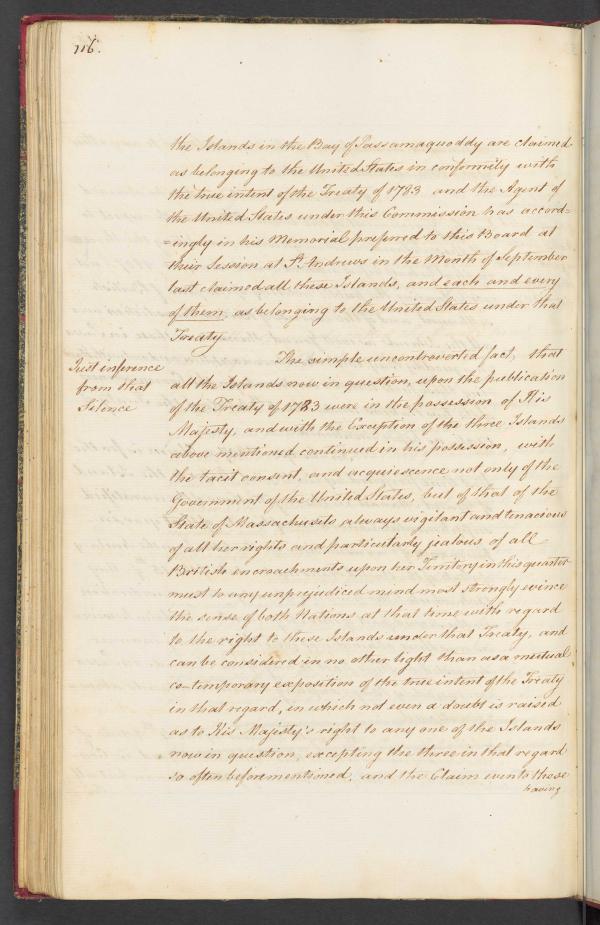 116.
the Islands in the Bay of Passamaquoddy are claimed
as belonging to the United States in conformity with
the true intent of the Treaty of 1783 and the Agent of
the United States under this Commission has accord=
=ingly in his Memorial preferred to this Board at
their Session at St. Andrews in the Month of September
last claimed all these Islands, and each and every
of them, as belonging to the United States under that
Treaty.
Just inference
from that
Silence
The simple uncontroverted fact, that
all the Islands now in question, upon the publication
of the Treaty of 1783 were in the possession of His
Majesty, and with the Exception of the three Islands
above mentioned continued in his possession, with
the tacit consent, and acquiescence not only of the
Government of the United States, but of that of the
State of Massachusets always vigilant and tenacious
of all her rights and particularly jealous of all
British encroachments upon her Territory in this quarter
must to any unprejudiced mind most strongly evince
the sense of both Nations at that time with regard
to the right to these Islands under that Treaty, and
can be considered in no other light than as a mutual
co-temporary exposition of the true intent of the Treaty
in that regard, in which not even a doubt is raised
as to His Majesty's right to any one of the Islands
now in question, excepting the three in that regard
so often beforementioned, and the Claim even to these
having